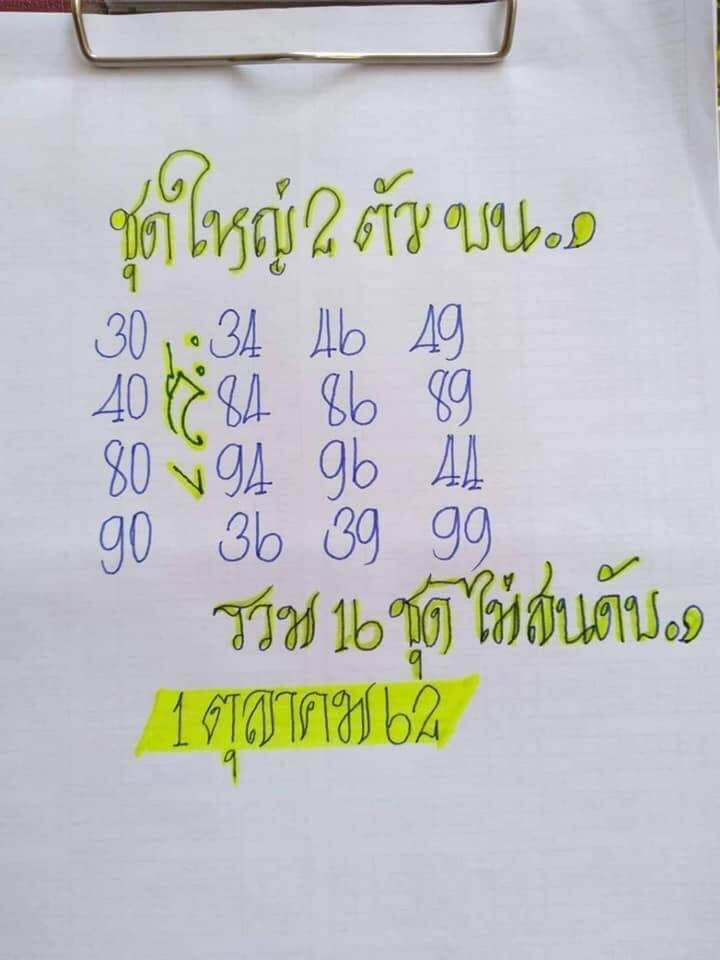 ชุดใหญ่ 2 ตัว บน.
30 34 46 49
40 84 86 89
80 94 96 44
90 36 39 99
รวม 16 ชุด ไม่สนดับ.
1 ตุลาคม 62